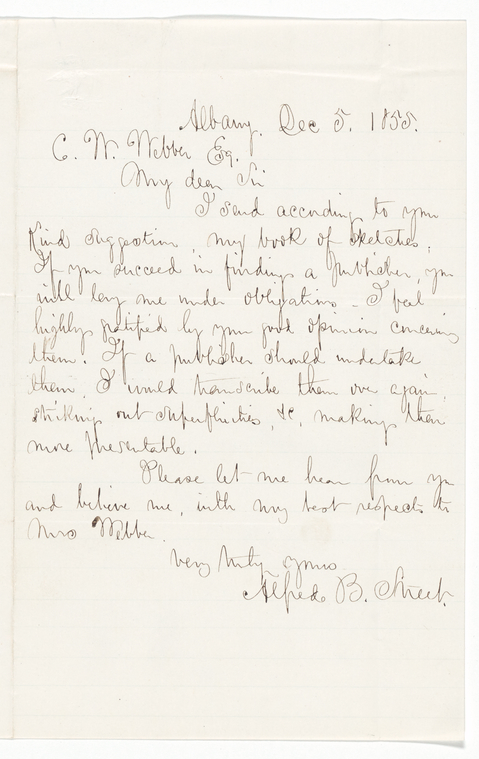 Albany. Dec 5. 1855.
C. W. Webber Esq.
My dear Sir
I send according to your
kind suggestion, my book of sketches.
If you succeed in finding a publisher, you
will lay me under obligations - I feel
highly gratified by your good opinion concerning
them. If a publisher should undertake
them, I would transcribe them over again,
striking out superfluities, &c, making them
more presentable.
Please let me hear from you
and believe me, with my best respects to
Mrs Webber
very truly yours
Alfred B. Street.